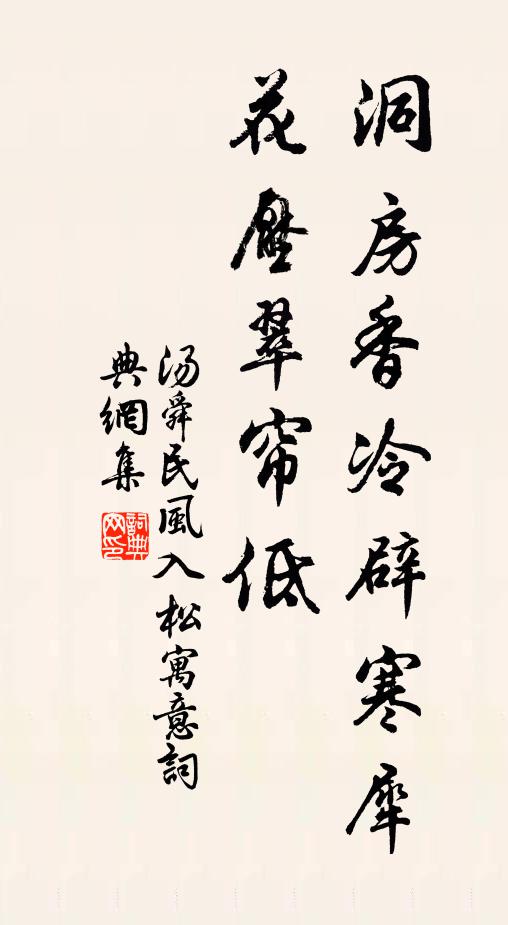 洞房香冷辟寒犀
花壓翠帘低
汤舜民風入松寓意詞
典網集
詞典
网印